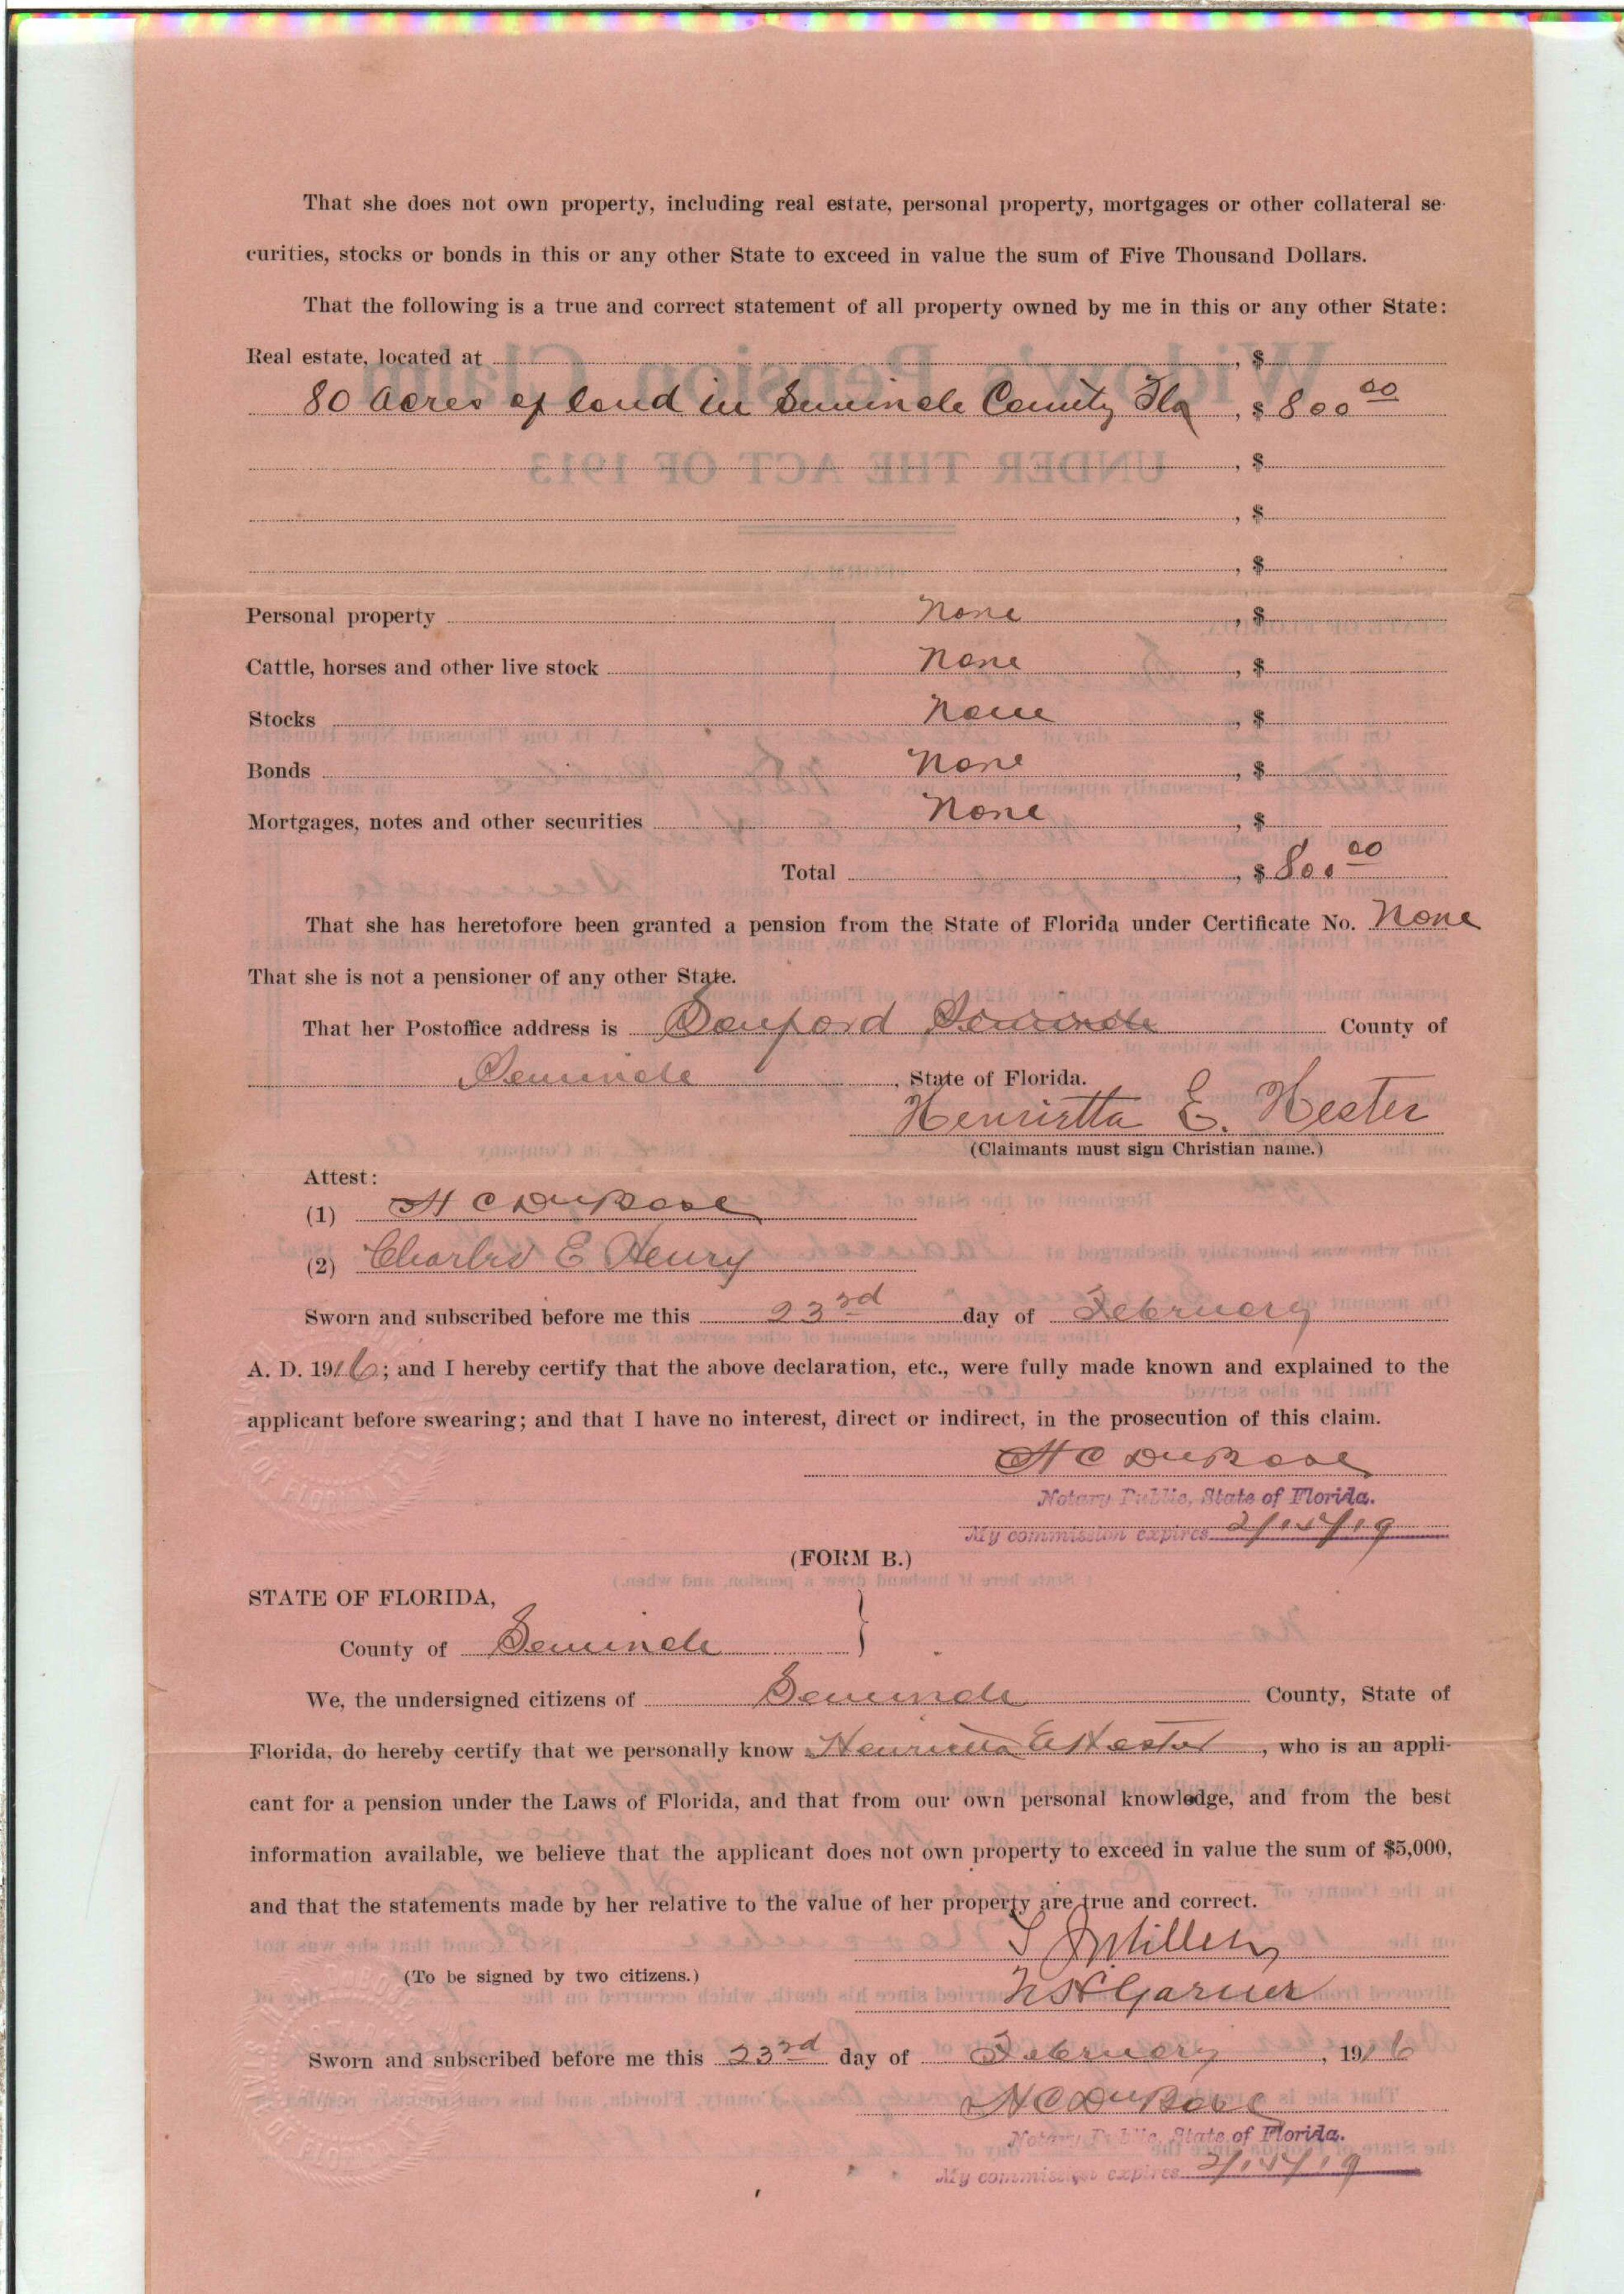 That she does not own property, including real estate, personal property, mortgages or other collateral se-
curities, stocks or bonds in this or any other State to exceed in value the sum of Five Thousand Dollars.
That the following is a true and correct statement of all property owned by me in this or any other State:
Real estate, located at , $
80 acres of land in Seminole County Fla , $ 800 00
, $
, $
, $
Personal property None , $
Cattle, horses and other live stock None , $
Stocks None , $
Bonds None , $
Mortgages, notes and other securities None , $
Total , $ 800 00
That she has heretofore been granted a pension from the State of Florida under Certificate No. None
That she is not a pensioner of any other State.
That her Postoffice address is Sanford Seminole County of
Seminole , State of Florida.
Henrietta E. Hester
(Claimants must sign Christian name.)
Attest:
(1) H C DuBose
(2) Charles E Henry
Sworn and subscribed before me this 23rd day of February
A. D. 1916; and I hereby certify that the above declaration, etc., were fully made known and explained to the
applicant before swearing; and that I have no interest, direct or indirect, in the prosecution of this claim.
H C DuBose
Notary Public, State of Florida.
My commission expires 2/15/19
(FORM B.)
STATE OF FLORIDA,
County of Seminole }
We, the undersigned citizens of Seminole County, State of
Florida, do hereby certify that we personally know Henrietta E Hester , who is an appli-
cant for a pension under the Laws of Florida, and that from our own personal knowledge, and from the best
information available, we believe that the applicant does not own property to exceed in value the sum of $5,000,
and that the statements made by her relative to the value of her property are true and correct.
Miller
(To be signed by two citizens.)
Garner
Sworn and subscribed before me this 23rd day of February , 1916
H C DuBose
Notary Public, State of Florida.
My commission expires 2/15/19